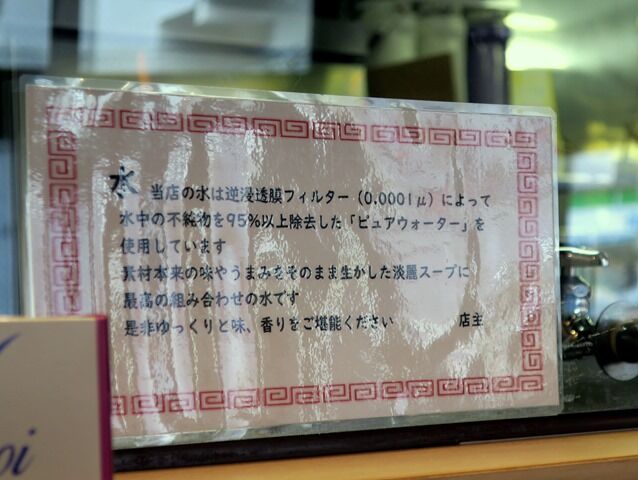 水 当店の水は逆浸透膜フィルター（0.0001μ）によって
水中の不純物を95%以上除去した「ピュアウォーター」を
使用しています
素材本来の味やうまみをそのまま生かした淡麗スープに
最高の組み合わせの水です
是非ゆっくりと味、香りをご堪能ください 店主